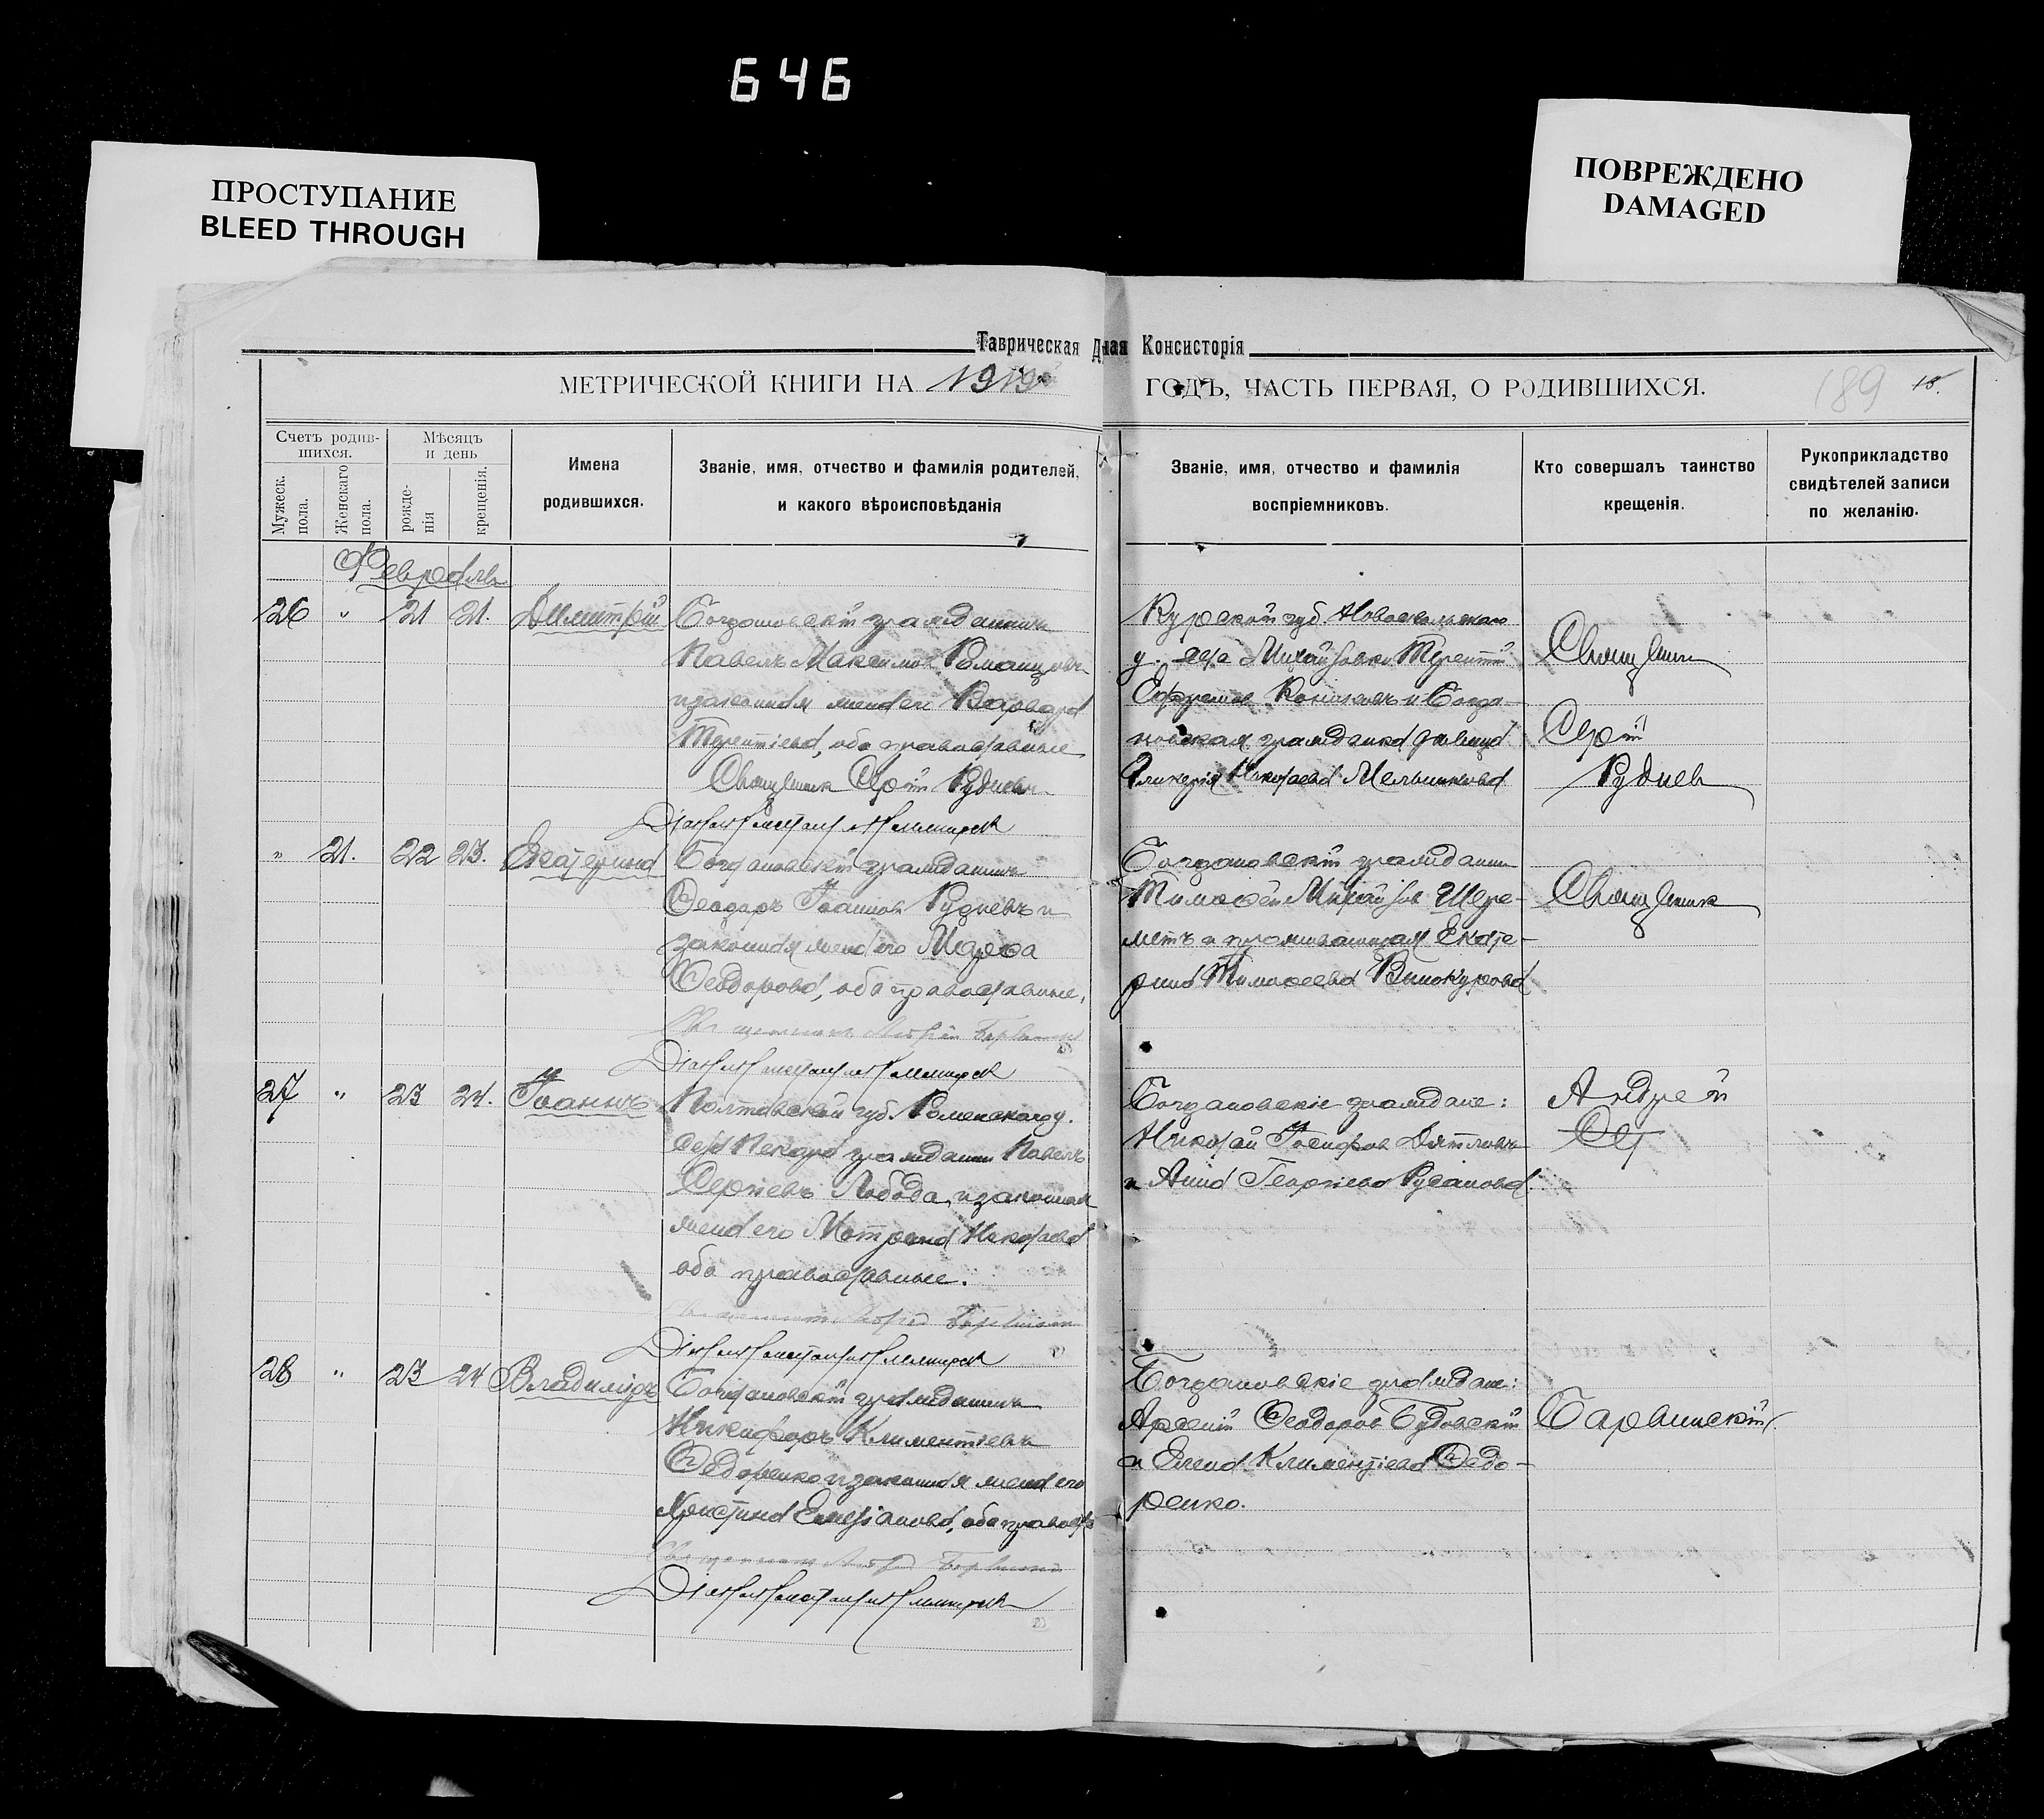 646
ПРОСТУПАНИЕ
BLEED THROUGH
ПОВРЕЖДЕНО
DAMAGED
Таврическая Д ная Консисторія
МЕТРИЧЕСКОЙ КНИГИ НА 1919 ГОДЪ, ЧАСТЬ ПЕРВАЯ, О РОДИВШИХСЯ.
189 18.
Счетъ родив-
шихся.
Мужеск. пола.
Женскаго пола.
Мѣсяцъ
и день
рожде-
нія
крещенія.
Имена
родившихся.
Званіе, имя, отчество и фамилія родителей,
и какого вѣроисповѣданія
Званіе, имя, отчество и фамилія
воспріемниковъ.
Кто совершалъ таинство
крещенія.
Рукоприкладство
свидѣтелей записи
по желанію.
Февраль
26 " 21 21. Димитрій
Богдановскій гражданинъ
Павелъ Максимов Романцовъ
и законная жена его Варвара
Терентіева, оба православные
Священник Сергій Руднев
Курской губ. Новооскольскаго
у. села Михайловки Терентій
Ефремов и Богда-
новская гражданка девица
Гликерія Николаева Мельникова
Священник
Сергій
Руднев
" 21. 22 23. Екатерина
Богдановскій гражданинъ
Ѳеодоръ Іоаннов Рудневъ и
законная жена его Марѳа
Ѳеодорова, оба православные,
Священник Андрей Барвинский
Богдановскій гражданин
Тимоѳей Михайлов Шере-
метъ и проживающая Екате-
рина Тимоѳеева Винокурова
Священник
27 " 23 24. Іоаннъ
Полтавской губ. Роменскаго у.
села гражданин Павелъ
Сергіевъ Лобода, и законная
жена его Матрона Николаева
оба православные.
Богдановскіе граждане:
Николай Іосифов Дятловъ
и Анна Георгіева Русанова.
Андрей
28 " 23 24 Владиміръ
Богдановскій гражданинъ
Никифоръ Климентіевъ
Ѳедоренко и законная жена его
Христина Емельянова, оба правосл.
Богдановскіе граждане:
Арсеній Ѳеодоров Будовскій
и Елена Климентіева Ѳедо-
ренко.
Барвинскій.